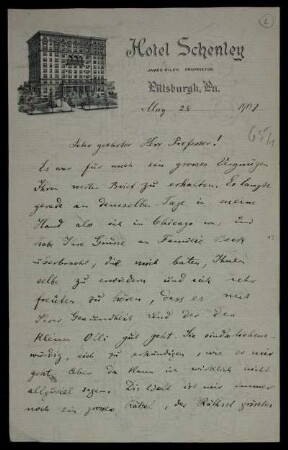 Hotel Schenley
JAMES RILEY PROPRIETOR.
Pittsburgh, Pa.
May 28 190
Sehr geehrter Herr Professor!
Es war für mich ein grosses Vergnügen
Ihren werten Brief zu erhalten. Er langte
gerade an demselben Tage in meine
Hand als ich in Chicago war, und
habe Ihre Grüsse an Familie
überbracht, die mich baten, Ihnen
selbe zu erwidern und sich sehr
freuten zu hören, dass es mit
Ihrer Gesundheit und der der
kleinen gut geht. Sie sind liebens-
würdig, sich zu erkundigen, wie es mir
geht, aber da kann ich wirklich nicht
allzuviel sagen. Die Welt ist mir immer
noch ein grosses Rätsel, des Räthsel grösstes